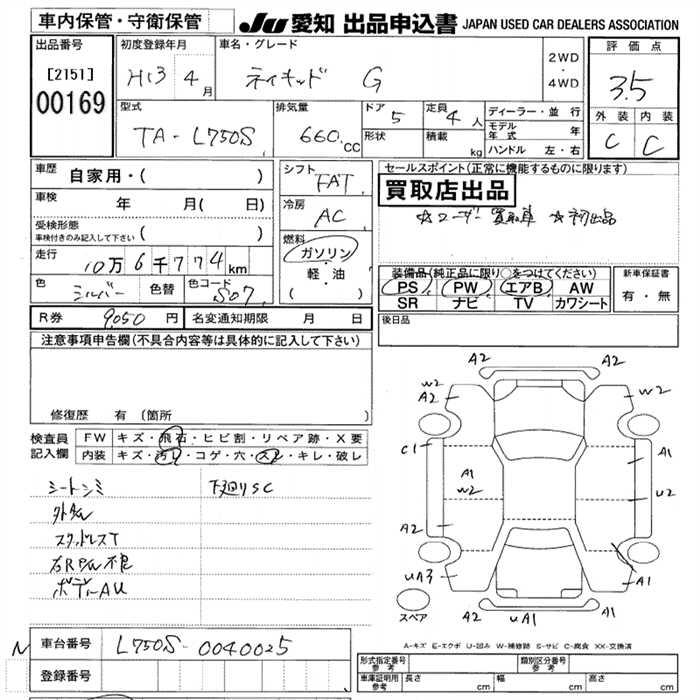 車内保管・守衛保管
JU 愛知 出品申込書 JAPAN USED CAR DEALERS ASSOCIATION
出品番号
[2151]
00169
初度登録年月
H13 4月
車名・グレード
ネイキッド G
2WD
・
4WD
評価点
3.5
外装 内装
C C
型式
TA-L750S
排気量
660 cc
ドア
5
形状
定員
4人
積載 kg
ディーラー・並行
モデル年式 年
ハンドル 左・右
車歴
自家用・( )
車検
年 月( 日)
受検形態
車検付きのみ記入して下さい ( )
走行
10万6千774km
色
シルバー
色替
色コード
S07
シフト
FAT
冷房
AC
燃料
ガソリン・軽・油
( )
セールスポイント(正常に機能するものに限ります)
買取店出品
☆ユーザー買取車 ☆初出品
装備品(純正品に限り○をつけてください)
PS PW エアB AW
SR ナビ TV カワシート
新車保証書
有・無
R券 9,050 円 名変通知期限 月 日
後日品
注意事項申告欄(不具合内容等は具体的に記入して下さい)
修復歴 有(箇所 )
検査員記入欄
FW キズ・飛石・ヒビ割・リペア跡・X要
内装 キズ・汚レ・コゲ・穴・スレ・キレ・破レ
シートシミ
下廻りSC
スタッドレスT
右RPW不良
ボディーAU
A2 A2
W2
A2
W2
C1
A1
A1
W2
U2
A2
UA3
A1
A2 UA1 A2
スペア
A-キズ E-エクボ U-凹み W-補修跡 S-サビ C-腐食 XX-交換済
N
車台番号
L750S-0040025
登録番号
形式指定番号 参考
類別区分番号 参考
車庫証明用 参考 長さ cm 幅 cm 高さ cm